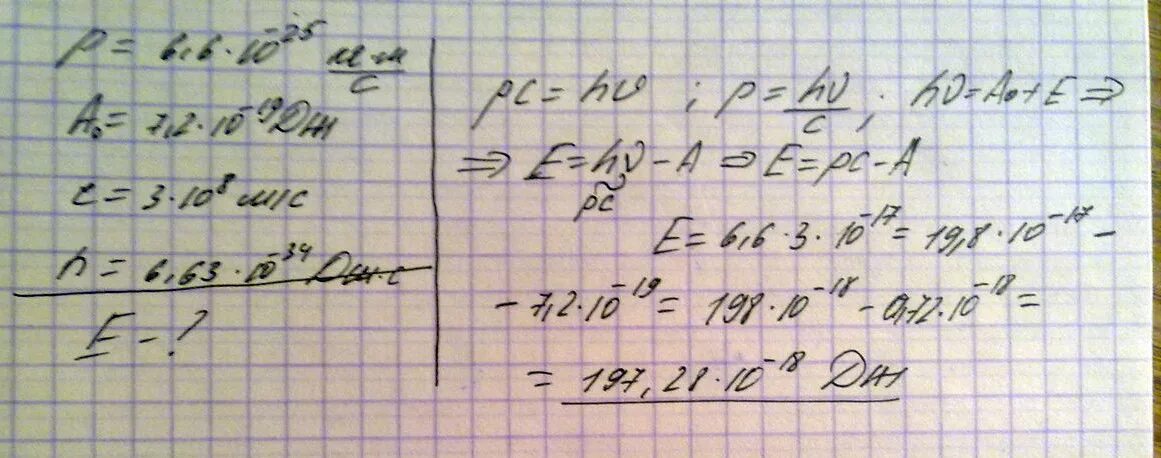 p = 6,6·10⁻²⁵ кг·м/с
A₀ = 7,2·10⁻¹⁹ Дж
c = 3·10⁸ м/с
h = 6,63·10⁻³⁴ Дж·с
E - ?
pc = hν ; p = hν/c ; hν = A₀ + E ⇒
⇒ E = hν - A ⇒ E = pc - A
pc
E = 6,6·3·10⁻¹⁷ = 19,8·10⁻¹⁷ -
- 7,2·10⁻¹⁹ = 198·10⁻¹⁸ - 0,72·10⁻¹⁸ =
= 197,28·10⁻¹⁸ Дж